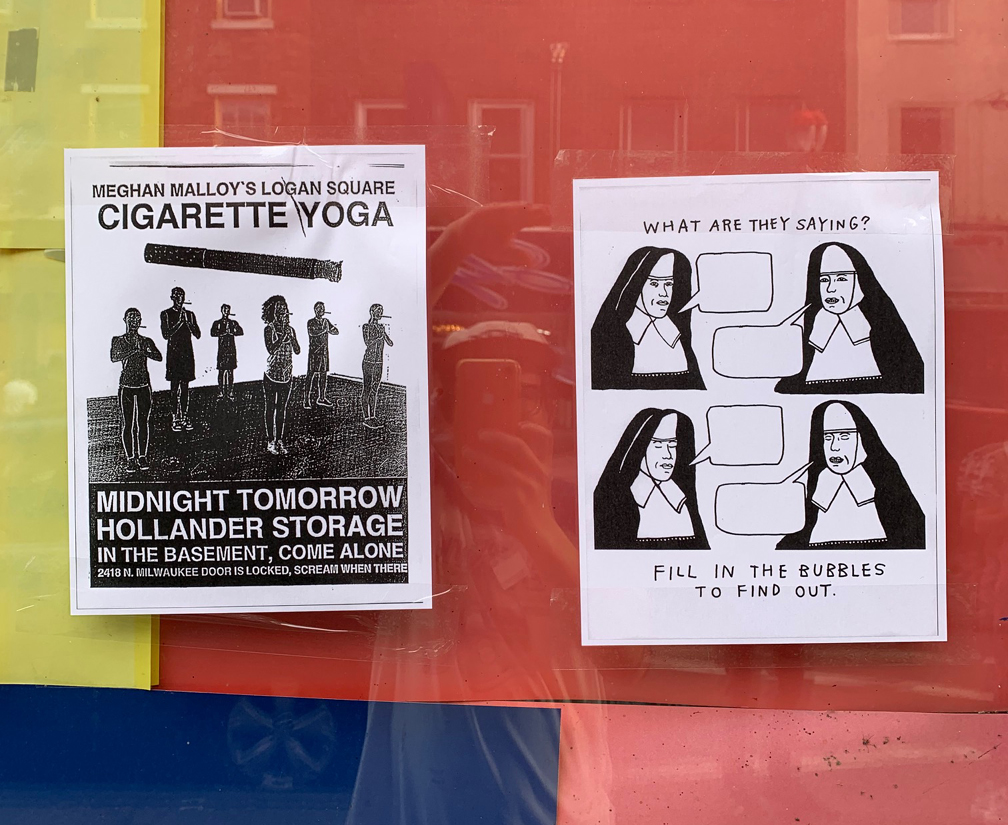 MEGHAN MALLOY'S LOGAN SQUARE
CIGARETTE YOGA
MIDNIGHT TOMORROW
HOLLANDER STORAGE
IN THE BASEMENT, COME ALONE
2418 N. MILWAUKEE DOOR IS LOCKED, SCREAM WHEN THERE
WHAT ARE THEY SAYING?
FILL IN THE BUBBLES
TO FIND OUT.